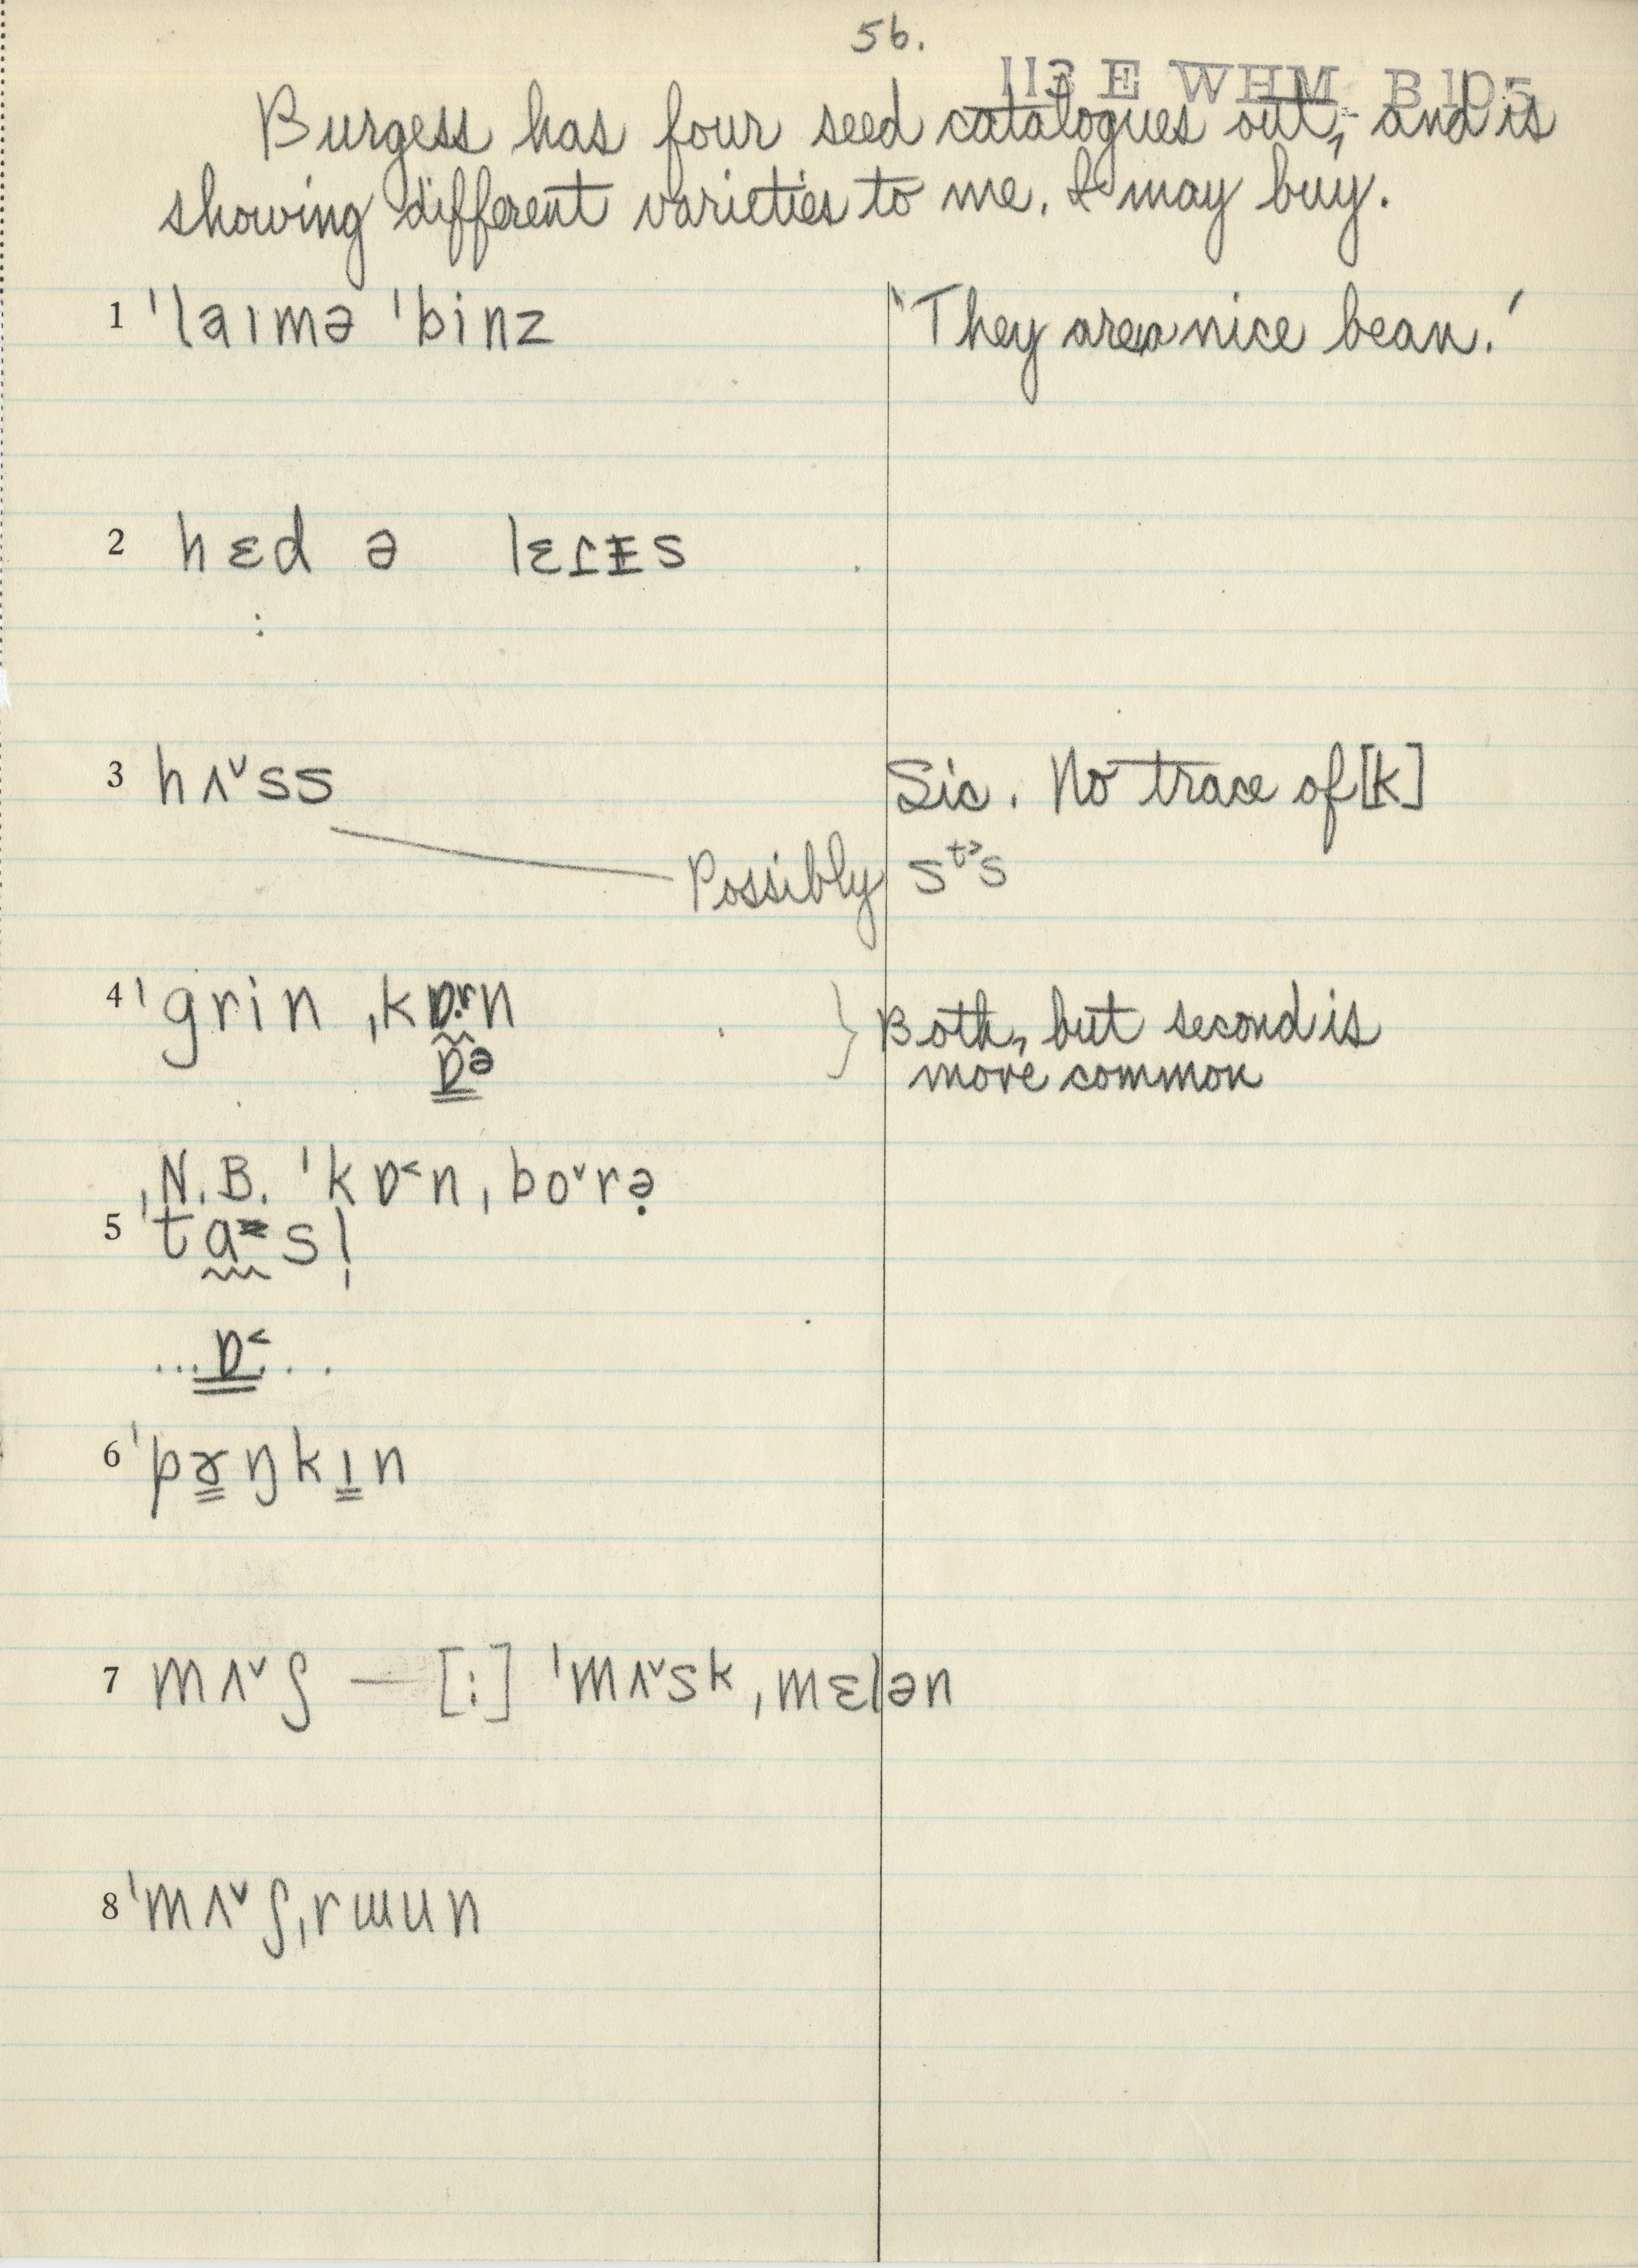 56.
113 E WHM B 105
Burgess has four seed catalogues out, and is
showing different varieties to me. I may buy.
1 ˈlaɪmə ˈbinz ‘They are a nice bean.’
2 hɛd ə lɛɾɪs
:
3 hʌ˅ss Sic. No trace of [k]
Possibly sᵗ˃s
4 ˈgrin ˌkɒrn } Both, but second is
ɒᵊ more common
N.B. ˈkɒ˂n ˌbo˅rə̣
5 ˈtas̩l
...ɒ˂...
6 ˈpɤŋkɪn
7 mʌ˅ʃ — [:] ˈmʌ˅sk ˌmɛlən
8 ˈmʌ˅ʃˌrɯun